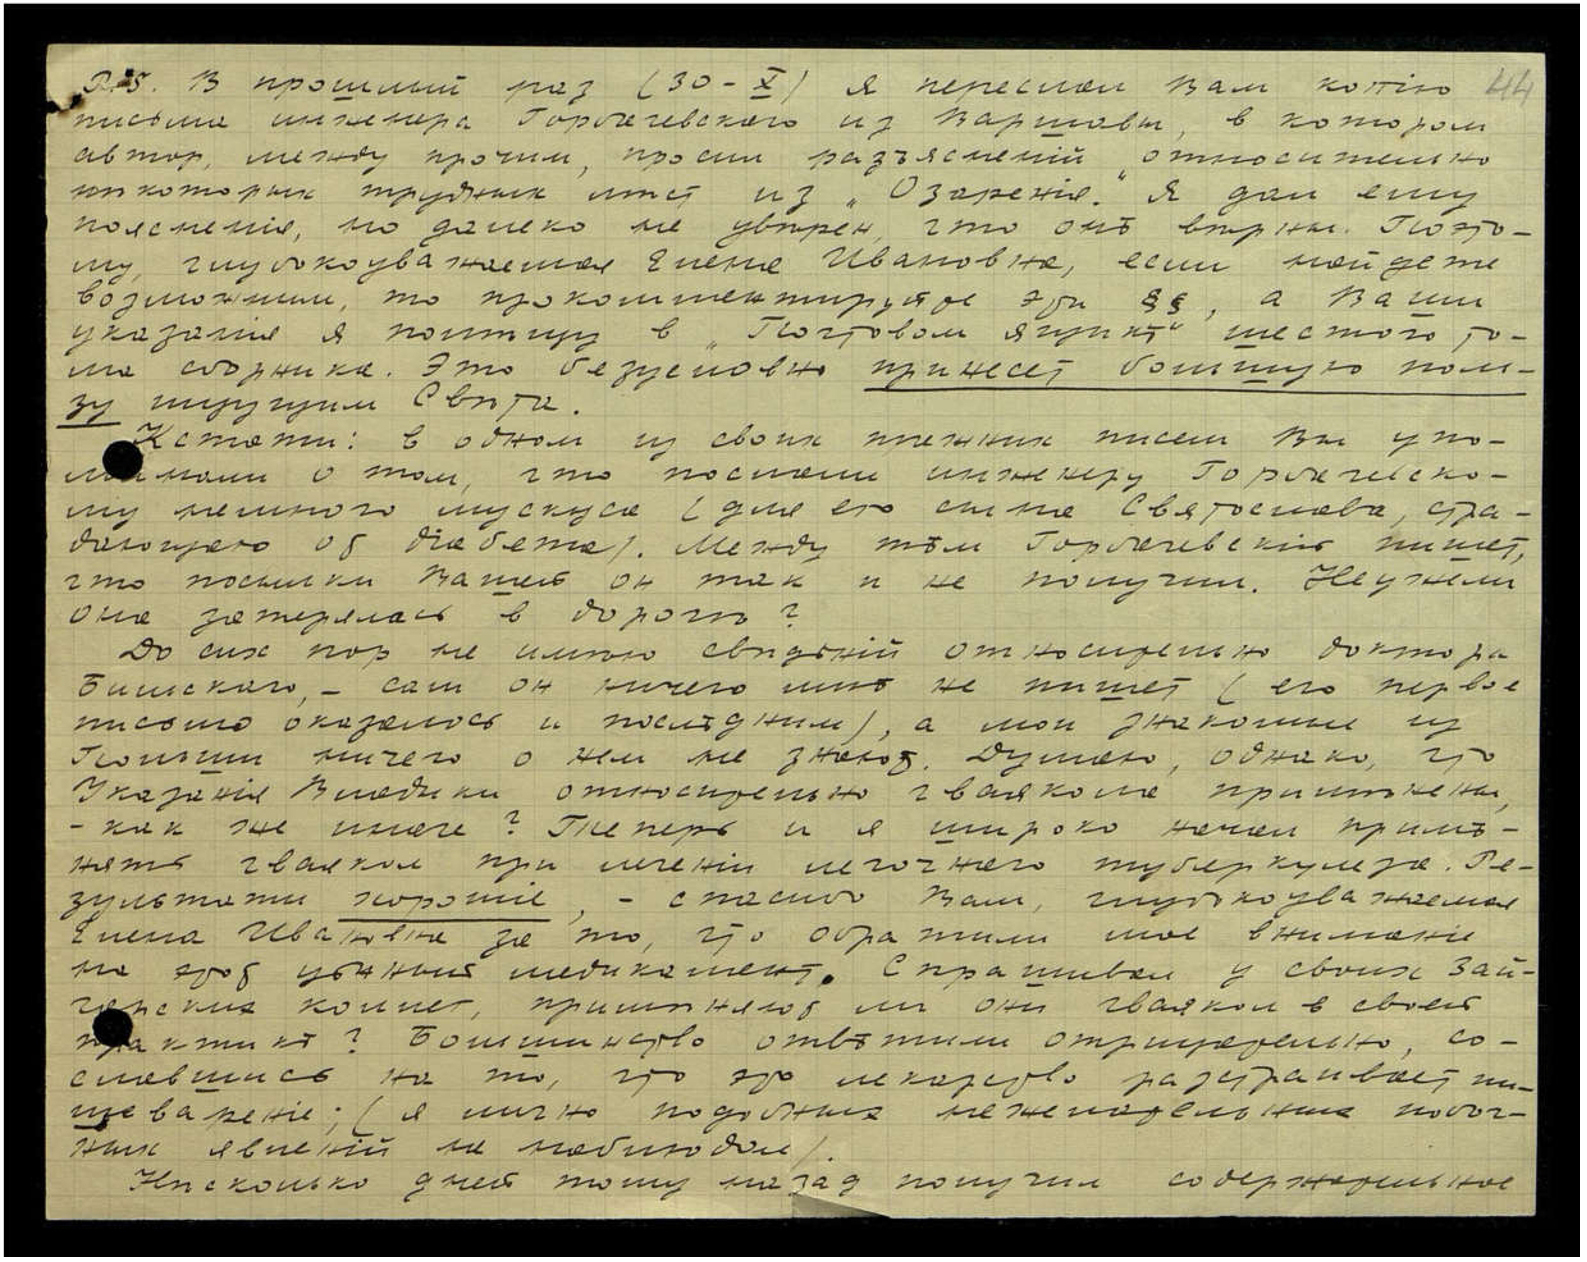 P.S. В прошлый раз (30-X) я переслал Вам копію 44
письма инженера Горбачевскаго из Варшавы, в котором
автор, между прочим, просил разъясненій относительно
нѣкоторых трудных мѣст из „Озаренія." Я дал ему
поясненія, но далеко не увѣрен, что онѣ вѣрны. Поэто-
му, глубокоуважаемая Елена Ивановна, если найдете
возможным, то прокомментируйте эти §§, а Ваши
указанія я помѣщу в „Почтовом ящикѣ" шестого то-
ма сборника. Это безусловно принесет большую поль-
зу ищущим Свѣта.
Кстати: в одном из своих прежних писем Вы упо-
минали о том, что послали инженеру Горбачевско-
му немного мускуса (для его сына Святослава, стра-
дающаго от діабета). Между тѣм Горбачевскій пишет,
что посылки Вашей он так и не получил. Неужели
она затерялась в дорогѣ?
До сих пор не имѣю свѣдѣній относительно доктора
Бѣльскаго, - сам он ничего мнѣ не пишет (его первое
письмо оказалось и послѣдним), а мои знакомые из
Польши ничего о нем не знают. Думаю, однако, что
Указанія Владыки относительно гваякола примѣнены,
- как же иначе? Теперь и я широко начал примѣ-
нять гваякол при леченіи легочнаго туберкулеза. Ре-
зультаты хорошіе, - спасибо Вам, глубокоуважаемая
Елена Ивановна за то, что обратили мое вниманіе
на этот цѣнный медикамент. Спрашивал у своих Зай-
чарских коллег, примѣняют ли они гваякол в своей
практикѣ? Большинство отвѣтили отрицательно, со-
славшись на то, что это лекарство разстраивает пи-
щевареніе; (я лично подобных нежелательных побоч-
ных явленій не наблюдал).
Нѣсколько дней тому назад получил содержательное